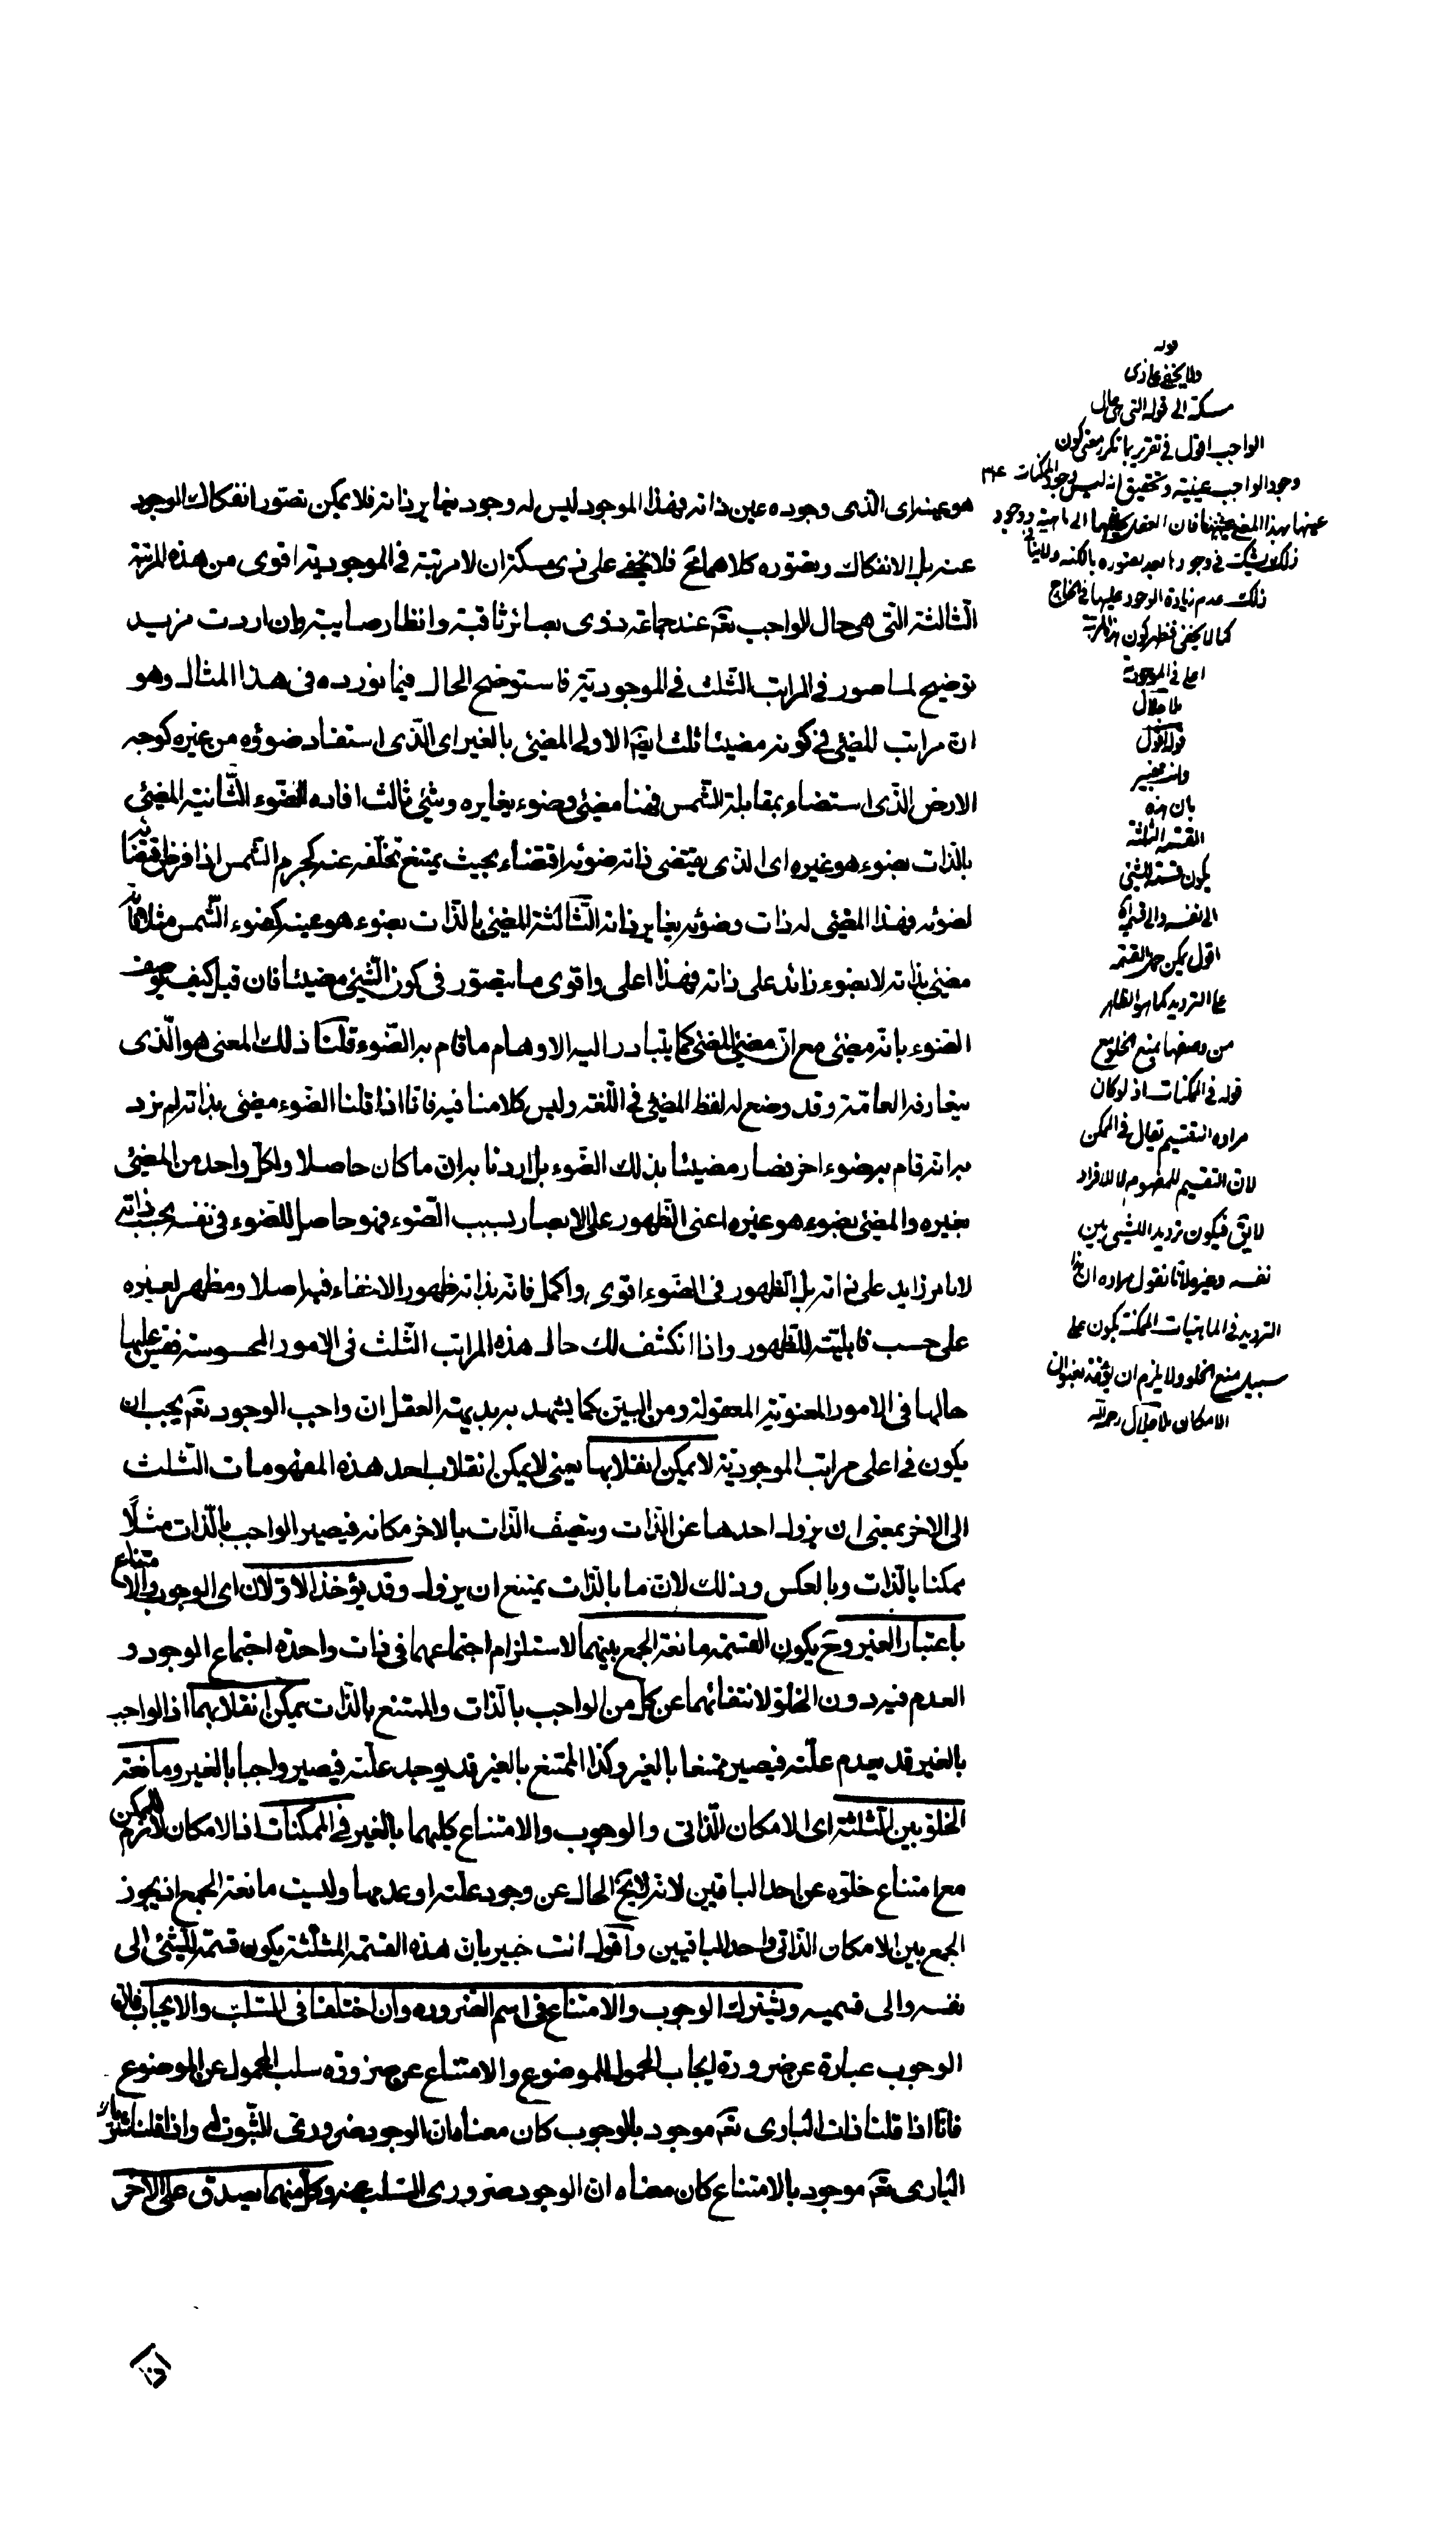 هو عينه اى الذى وجوده عين ذاته فهذا الموجود ليس له وجود يغاير ذاته فلا يمكن تصور انفكاك الوجود
عنه بل الانفكاك وتصوره كلاهما مح فلا يخفى على ذى مسكة ان لا مرتبة فى الموجودية اقوى من هذه المرتبة
الثالثة التى هى حال الواجب تعم عند جماعة ذوى بصائر ثاقبة وانظار صايبة وان اردت مزيد
توضيح لما صور فى المراتب الثلث فى الموجودية فاستوضح الحال فيما نورده فى هذا المثال وهو
ان مراتب المضئى فى كونه مضيئا ثلث ايضم الاولى المضئى بالغير اى الذى استفاد ضوؤه من غيره كوجه
الارض الذى استضاء بمقابلة الشمس فهنا مضئى وضوء يغايره وشئى ثالث افاده الضوء الثانية المضئى
بالذات بضوء هو غيره اى الذى يقتضى ذاته ضوئه اقتضاء بحيث يمتنع تخلفه عنه كجرم الشمس اذا فرض اقتضائه
لضوئه فهذا المضئى له ذات وضوئه يغاير ذاته الثالثة المضئى بالذات بضوء هو عينه كضوء الشمس مثلا فانه
مضئى بذاته لا بضوء زائد على ذاته فهذا اعلى واقوى ما يتصور فى كون الشئى مضيئا فان قيل كيف يوصف
الضوء بانه مضئى مع ان معنى المضئى كما يتبادر اليه الاوهام ما قام به الضوء قلنا ذلك المعنى هو الذى
يتعارفه العامة وقد وضع له لفظ المضئى فى اللغة وليس كلامنا فيه فانا اذا قلنا الضوء مضئى بذاته لم نرد
به انه قام به ضوء اخر فصار مضيئا بذلك الضوء بل اردنا به ان ما كان حاصلا ولكل واحد من المضئى
بغيره والمضئى بضوء هو غيره اعنى الظهور على الابصار بسبب الضوء فهو حاصل للضوء فى نفسه بحسب ذاته
لا بامر زايد على ذاته بل الظهور فى الضوء اقوى واكمل فانه بذاته ظهور الاخفاء فيه اصلا ومظهر لغيره
على حسب قابليته للظهور واذا انكشف لك حال هذه المراتب الثلث فى الامور المحسوسة فقس عليها
حالها فى الامور المعنوية المعقولة ومن البين كما يشهد به بديهة العقل ان واجب الوجود تعم يجب ان
يكون فى اعلى مراتب الموجودية لا يمكن انقلابها يعنى لا يمكن انقلاب احد هذه المفهومات الثلث
الى الاخر بمعنى ان يزول احدها عن الذات ويتصف الذات بالاخر مكانه فيصير الواجب بالذات مثلًا
ممكنا بالذات وبالعكس وذلك لان ما بالذات يمتنع ان يزول وقد يؤخذ الاولان اى الوجوب والامتناع
باعتبار الغير وح يكون القسمة مانعة الجمع بينهما لاستلزام اجتماعهما فى ذات واحدة اجتماع الوجود و
العدم فيه دون الخلو لانتفائهما عن كل من الواجب بالذات والممتنع بالذات يمكن انقلابهما اذ الواجب
بالغير قد يعدم علته فيصير ممتنعا بالغير وكذا الممتنع بالغير قد يوجد علته فيصير واجبا بالغير ومانعة
الخلو بين الثلثة اى الامكان الذاتى والوجوب والامتناع كليهما بالغير فى الممكنات اذ الامكان لازم للممكن
مع امتناع خلوه عن احد الباقين لانه لا يخ الحال عن وجود علته او عدمها وليست مانعة الجمع اذ يجوز
الجمع بين الامكان الذاتى واحد الباقيين واقول انت خبير بان هذه القسمة المثلثة يكون قسمة للشئى الى
نفسه والى قسميه ويشترك الوجوب والامتناع فى اسم الضرورة وان اختلفا فى السلب والايجاب فان
الوجوب عبارة عن ضرورة ايجاب المحمول للموضوع والامتناع عن ضرورة سلب المحمول عن الموضوع
فانا اذا قلنا ذات البارى تعم موجود بالوجوب كان معناه ان الوجود ضرورى الثبوت له واذا قلنا شريك
البارى تعم موجود بالامتناع كان معناه ان الوجود ضرورى السلب عنه وكل منهما يصدق على الاخر
قوله
ولا يخفى على ذى
مسكة الى قوله التى هى حال
الواجب اقول فى تقريره
وجود الواجب عينيته وتحقيق انه ليس وجود الممكنات
ذلك عدم زيادة الوجود عليها فى الخارج
كما لا يخفى فظهر كون هذا المرتبة
اعلى فى الموجودية
ملا جلال
قوله اقول
وانت خبير
بان هذه
القسمة الثلثة
يكون قسمة للشئى
الى نفسه والى قسميه
اقول يمكن حمل القسمة
على الترديد كما هو الظاهر
من وصفها بمنع الخلو مع
قوله فى الممكنات اذ لو كان
مراده التقسيم لقال فى الممكن
لان التقسيم للمفهوم لا للافراد
لا يق فيكون ترديدا للشئى بين
نفسه وغيره لانا نقول مراده ان هذا
الترديد فى الماهيات الممكنة يكون على
سبيل منع الخلو ولا يلزم ان يؤخذ بعنوان
الامكان ملا جلال رحمه الله